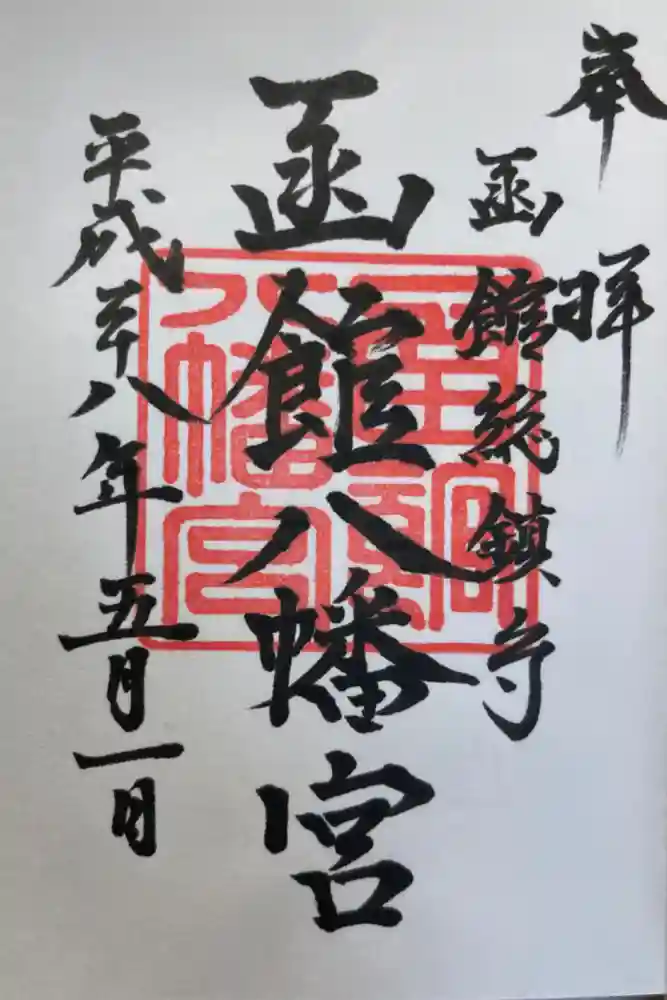 奉拝
函館総鎮守
函館八幡宮
平成二十八年五月一日
函館
八幡宮